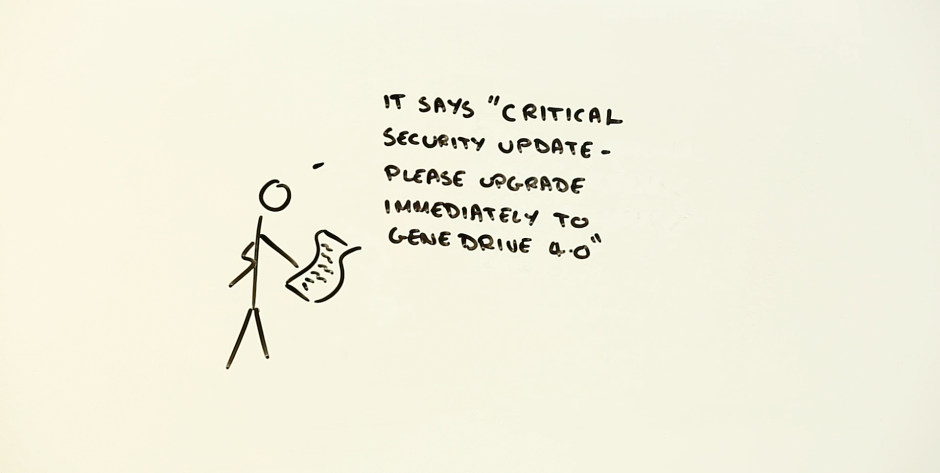 IT SAYS "CRITICAL
SECURITY UPDATE -
PLEASE UPGRADE
IMMEDIATELY TO
GENE DRIVE 4.0"